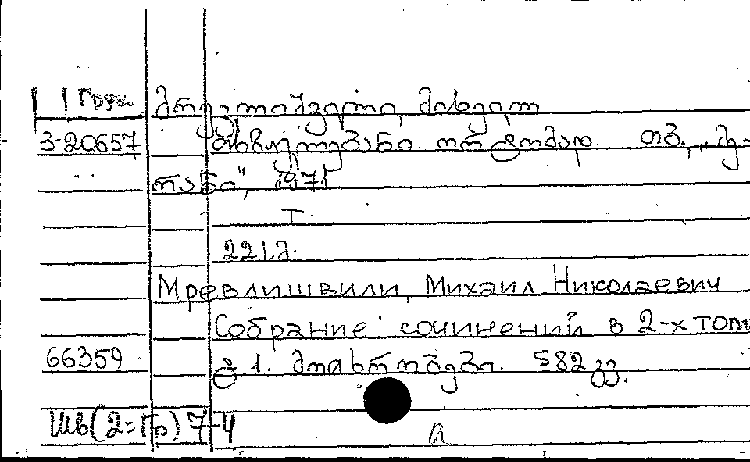 Груз
მრევლიშვილი, მიხეილ
3-20657 თხზულებანი ორ ტომად. თბ., „მე-
რანი", 1971
I
221.გ.
Мревлишвили, Михаил Николаевич
Собрание сочинений в 2-х том
66359 ტ 1. მოთხრობები. 582 გვ.
Шв(2=Гр) 7-4